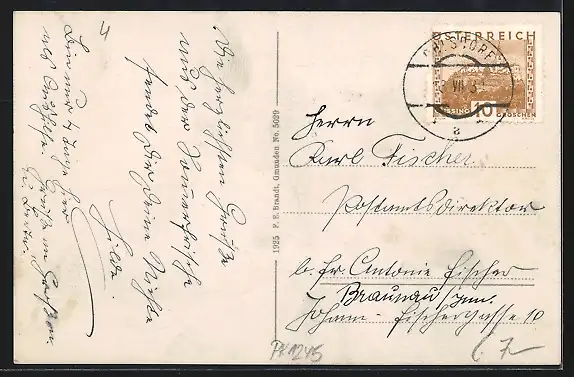 4
Die herzlichsten Grüße
aus der Sommerfrische
sendet Dir Deine Nichte
Hilde.
Bin nur 4 Tage hier
Grüße an
1925 F. E. Brandt, Gmunden No. 5029
ÖSTERREICH
10
GROSCHEN
VII
a
Herrn
Karl Fischer
Postamtsdirektor
b. Fr. Antonie Fischer
Braunau/Inn.
Johann-Fischergasse 10
PK1245
7-